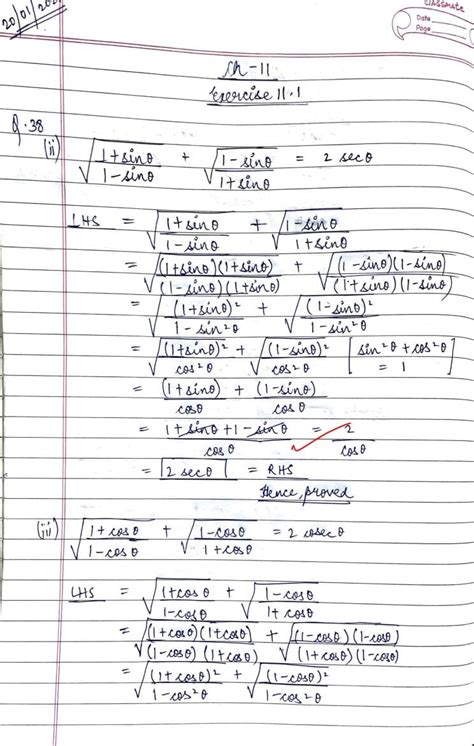 20/01/202
classmate
Date
Page
Ch-11
Exercise 11.1
Q.38
(ii) √((1+sinθ)/(1-sinθ)) + √((1-sinθ)/(1+sinθ)) = 2 secθ
LHS = √((1+sinθ)/(1-sinθ)) + √((1-sinθ)/(1+sinθ))
= √((1+sinθ)(1+sinθ)/(1-sinθ)(1+sinθ)) + √((1-sinθ)(1-sinθ)/(1+sinθ)(1-sinθ))
= √((1+sinθ)²/(1-sin²θ)) + √((1-sinθ)²/(1-sin²θ))
= √((1+sinθ)²/cos²θ) + √((1-sinθ)²/cos²θ) [sin²θ + cos²θ = 1]
= (1+sinθ)/cosθ + (1-sinθ)/cosθ
= (1+sinθ+1-sinθ)/cosθ = 2/cosθ
= 2 secθ = RHS
Hence, proved
(iii) √((1+cosθ)/(1-cosθ)) + √((1-cosθ)/(1+cosθ)) = 2 cosecθ
LHS = √((1+cosθ)/(1-cosθ)) + √((1-cosθ)/(1+cosθ))
= √((1+cosθ)(1+cosθ)/(1-cosθ)(1+cosθ)) + √((1-cosθ)(1-cosθ)/(1+cosθ)(1-cosθ))
= √((1+cosθ)²/(1-cos²θ)) + √((1-cosθ)²/(1-cos²θ))